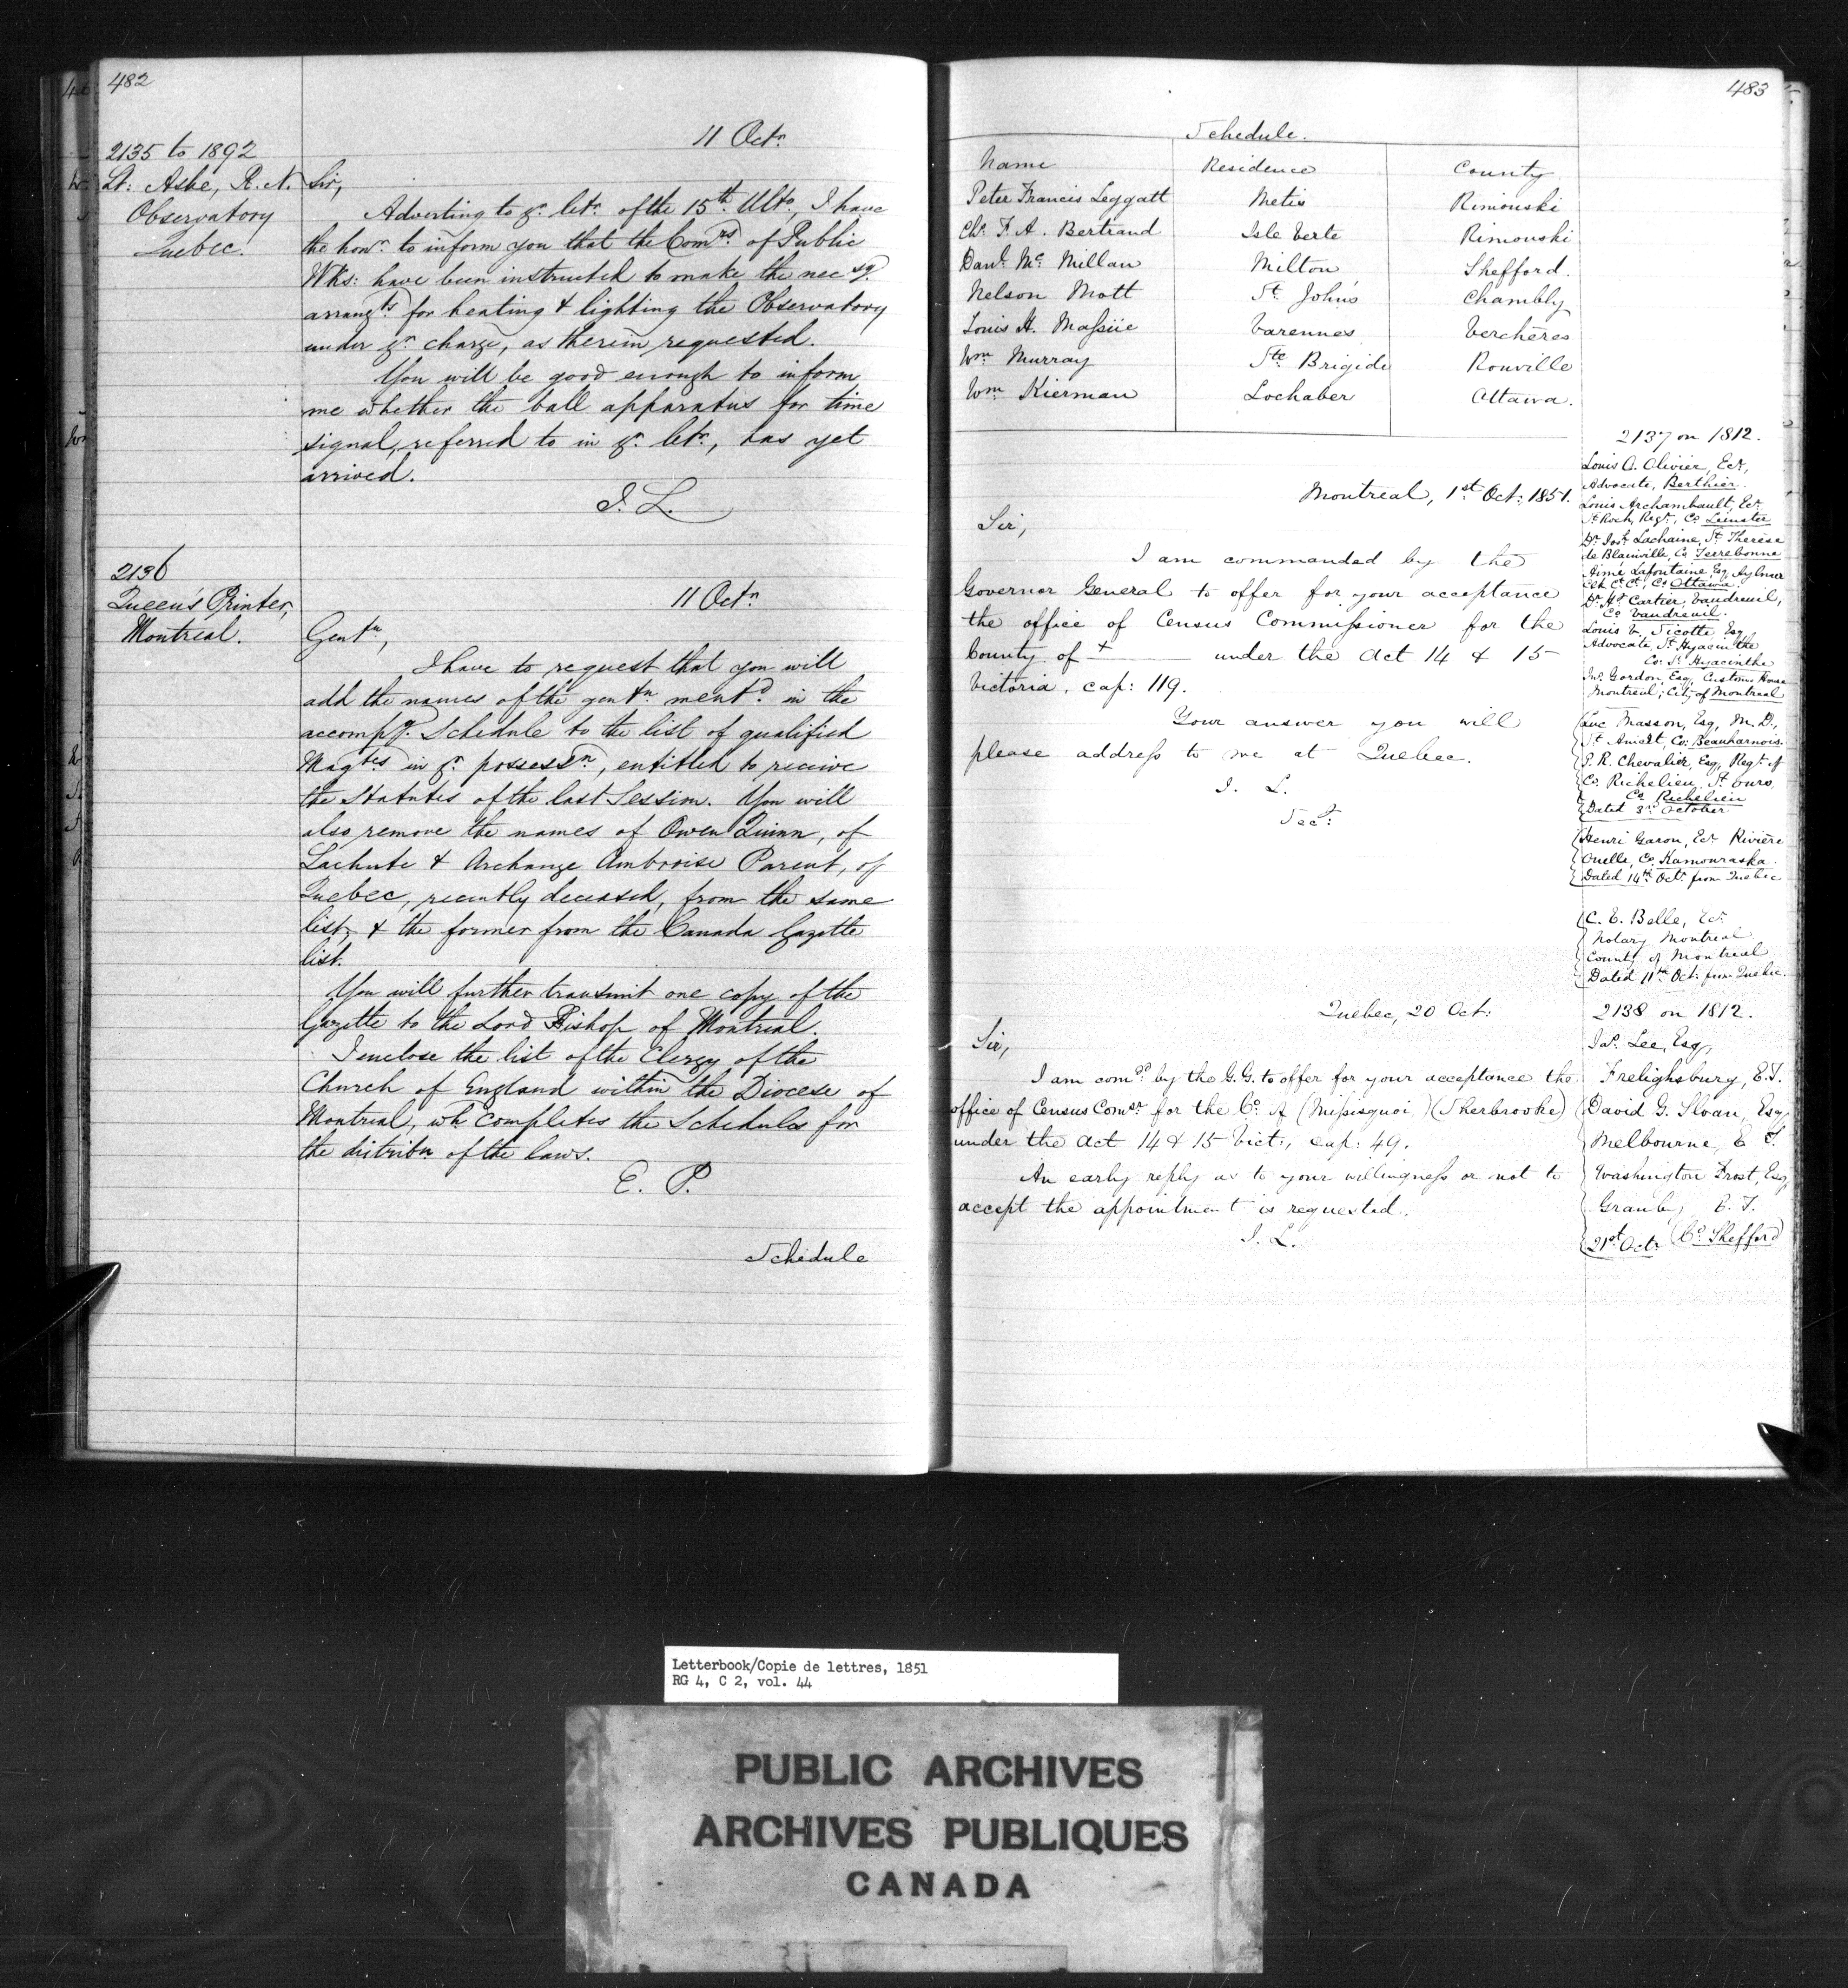 482
2135 to 1892
Lt: Ashe, R. N.
Observatory
Quebec.
11 Octr.
Sir,
Adverting to yr. letr. of the 15th Ulto, I have
the honr. to inform you that the Comrs. of Public
Wks: have been instructed to make the necsy.
arrangts. for heating & lighting the Observatory
under yr. charge, as therein requested.
You will be good enough to inform
me whether the ball apparatus for time
signal, referred to in yr. letr., has yet
arrived.
J. L.
2136
Queen's Printer,
Montreal.
11 Octr.
Gentn,
I have to request that you will
add the names of the gentn. mentd. in the
accompy. Schedule to the list of qualified
Magtes in yr. possessn, entitled to receive
the Statutes of the last Session. You will
also remove the names of Owen Quinn, of
Lachute & Archange Ambroise Parent, of
Quebec, recently deceased, from the same
list, & the former from the Canada Gazette
list.
You will further transmit one copy of the
Gazette to the Lord Bishop of Montreal.
I enclose the list of the Clergy of the
Church of England within the Diocese of
Montreal, wh. completes the Schedules for
the distribn of the laws.
E. P.
Schedule
483
Schedule.
Name Residence County
Peter Francis Leggatt Metis Rimouski
Chs. F. A. Bertrand Isle Verte Rimouski
Danl. Mc. Millan Milton Shefford.
Nelson Mott St. John's Chambly
Louis H. Massüe Varennes Verchères
Wm. Murray Ste Brigide Rouville
Wm Kierman Lochaber Ottawa.
2137 on 1812.
Louis A. Olivier, Ecr,
Advocate, Berthier.
Louis Archambault, Ecr.
St. Roch, Regr., Co. Leinster
Dr. Josh. Lachaine, St. Therèse
de Blainville, Co. Terrebonne
Aimé Lafontaine Esq, Aylmer
Clk Ct. Ct., Co Ottawa.
Dr. Ht. Cartier, Vaudreuil,
Co Vaudreuil.
Louis V. Sicotte, Esq
Advocate, St. Hyacinthe
Co. St. Hyacinthe
Jno. Gordon, Esq, Customs House
Montreal; City of Montreal
Luc Masson, Esq, M. D.,
St. Anicet, Co: Beauharnois.
P. R. Chevalier, Esq, Regr. of
Co. Richelieu, St. Ours,
Co. Richelieu
Dated 3rd October
Henri Garon, Ecr. Rivière
Ouelle, Co. Kamouraska.
Dated 14th Octr. from Quebec
C. E. Belle, Ecr.
Notary Montreal
County of Montreal
Dated 11th Oct: from Quebec.
Montreal, 1st Oct: 1851.
Sir,
I am commanded by the
Governor General to offer for your acceptance
the office of Census Commissioner for the
County of + under the Act 14 & 15
Victoria, cap: 119.
Your answer you will
please address to me at Quebec.
J. L.
Secy:
2138 on 1812.
Jas. Lee, Esq,
Frelighsburg, E.T.
David G. Sloan, Esq
Melbourne, E T.
Washington Frost, Esq,
Granby, E. T.
21st Octr. (Co. Shefford)
Quebec, 20 Oct:
Sir,
I am comdd. by the G.G. to offer for your acceptance the
office of Census Comsr. for the Co. of (Missisquoi,) (Sherbrooke)
under the Act 14 & 15 Vict:, cap: 49.
An early reply as to your willingness or not to
accept the appointment is requested.
J. L.
Letterbook/Copie de lettres, 1851
RG 4, C 2, vol. 44
PUBLIC ARCHIVES
ARCHIVES PUBLIQUES
CANADA